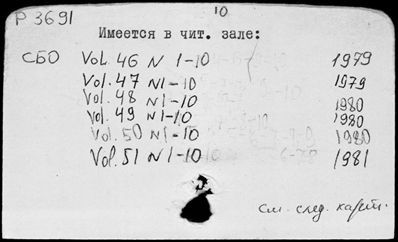 P 3691
10
Имеется в чит. зале:
СБО Vol. 46 N 1-10 1979
Vol. 47 N 1-10 1979
Vol. 48 N 1-10 1980
Vol. 49 N 1-10 1980
Vol. 50 N 1-10 1980
Vol. 51 N 1-10 1981
См. след. карт.